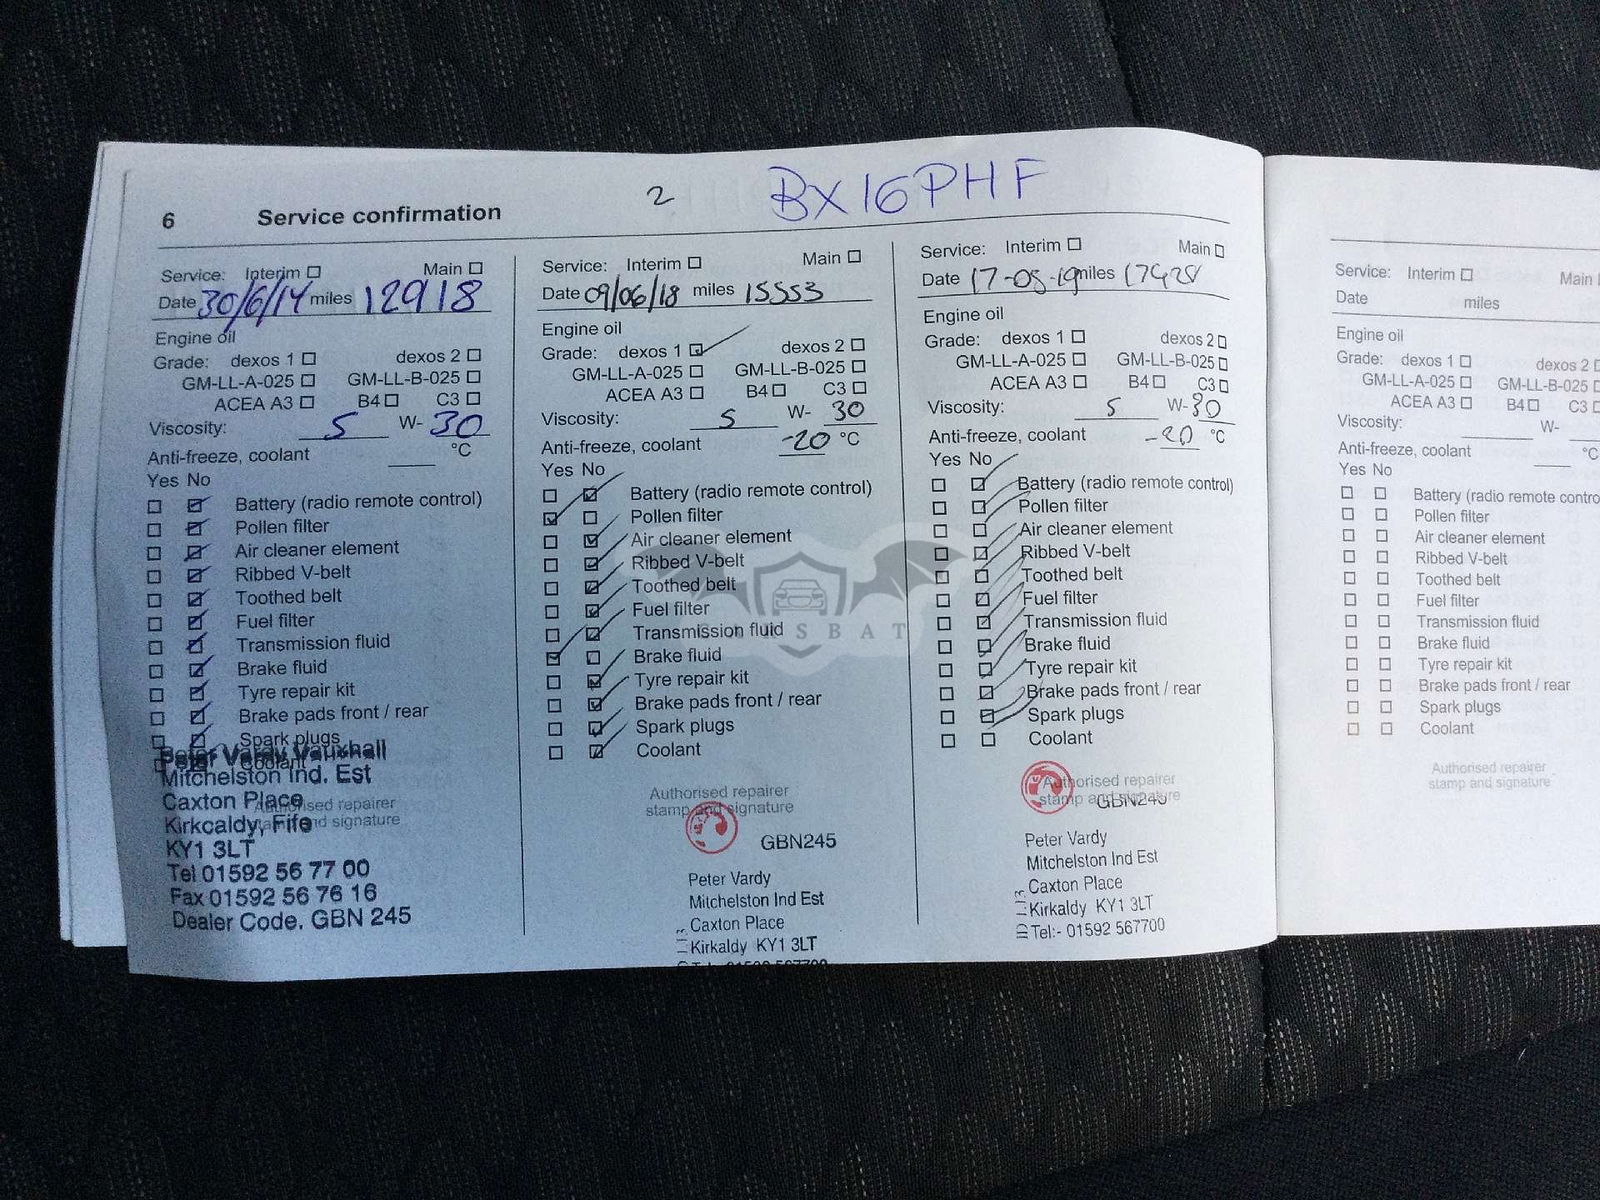 6 Service confirmation 2 BX16PHF
Service: Interim Main
Date 30/6/14 miles 12918
Engine oil
Grade: dexos 1 dexos 2
GM-LL-A-025 GM-LL-B-025
ACEA A3 B4 C3
Viscosity: 5 W-30
Anti-freeze, coolant °C
Yes No
Battery (radio remote control)
Pollen filter
Air cleaner element
Ribbed V-belt
Toothed belt
Fuel filter
Transmission fluid
Brake fluid
Tyre repair kit
Brake pads front / rear
Spark plugs
Coolant
Peter Vardy Vauxhall
Mitchelston Ind. Est
Caxton Place
Authorised repairer
Kirkcaldy, Fife
stamp and signature
KY1 3LT
Tel 01592 56 77 00
Fax 01592 56 76 16
Dealer Code. GBN 245
Service: Interim Main
Date 09/06/18 miles 15553
Engine oil
Grade: dexos 1 dexos 2
GM-LL-A-025 GM-LL-B-025
ACEA A3 B4 C3
Viscosity: 5 W- 30
Anti-freeze, coolant -20 °C
Yes No
Battery (radio remote control)
Pollen filter
Air cleaner element
Ribbed V-belt
Toothed belt
Fuel filter
Transmission fluid
Brake fluid
Tyre repair kit
Brake pads front / rear
Spark plugs
Coolant
Authorised repairer
stamp and signature
GBN245
Peter Vardy
Mitchelston Ind Est
Caxton Place
Kirkaldy KY1 3LT
Service: Interim Main
Date 17-05-19 miles 17428
Engine oil
Grade: dexos 1 dexos 2
GM-LL-A-025 GM-LL-B-025
ACEA A3 B4 C3
Viscosity: 5 W-30
Anti-freeze, coolant -20 °C
Yes No
Battery (radio remote control)
Pollen filter
Air cleaner element
Ribbed V-belt
Toothed belt
Fuel filter
Transmission fluid
Brake fluid
Tyre repair kit
Brake pads front / rear
Spark plugs
Coolant
Authorised repairer
stamp and signature
GBN245
Peter Vardy
Mitchelston Ind Est
Caxton Place
Kirkaldy KY1 3LT
Tel:- 01592 567700
Service: Interim Main
Date miles
Engine oil
Grade: dexos 1 dexos 2
GM-LL-A-025 GM-LL-B-025
ACEA A3 B4 C3
Viscosity: W-
Anti-freeze, coolant °C
Yes No
Battery (radio remote contro
Pollen filter
Air cleaner element
Ribbed V-belt
Toothed belt
Fuel filter
Transmission fluid
Brake fluid
Tyre repair kit
Brake pads front / rear
Spark plugs
Coolant
Authorised repairer
stamp and signature
CARSBAT